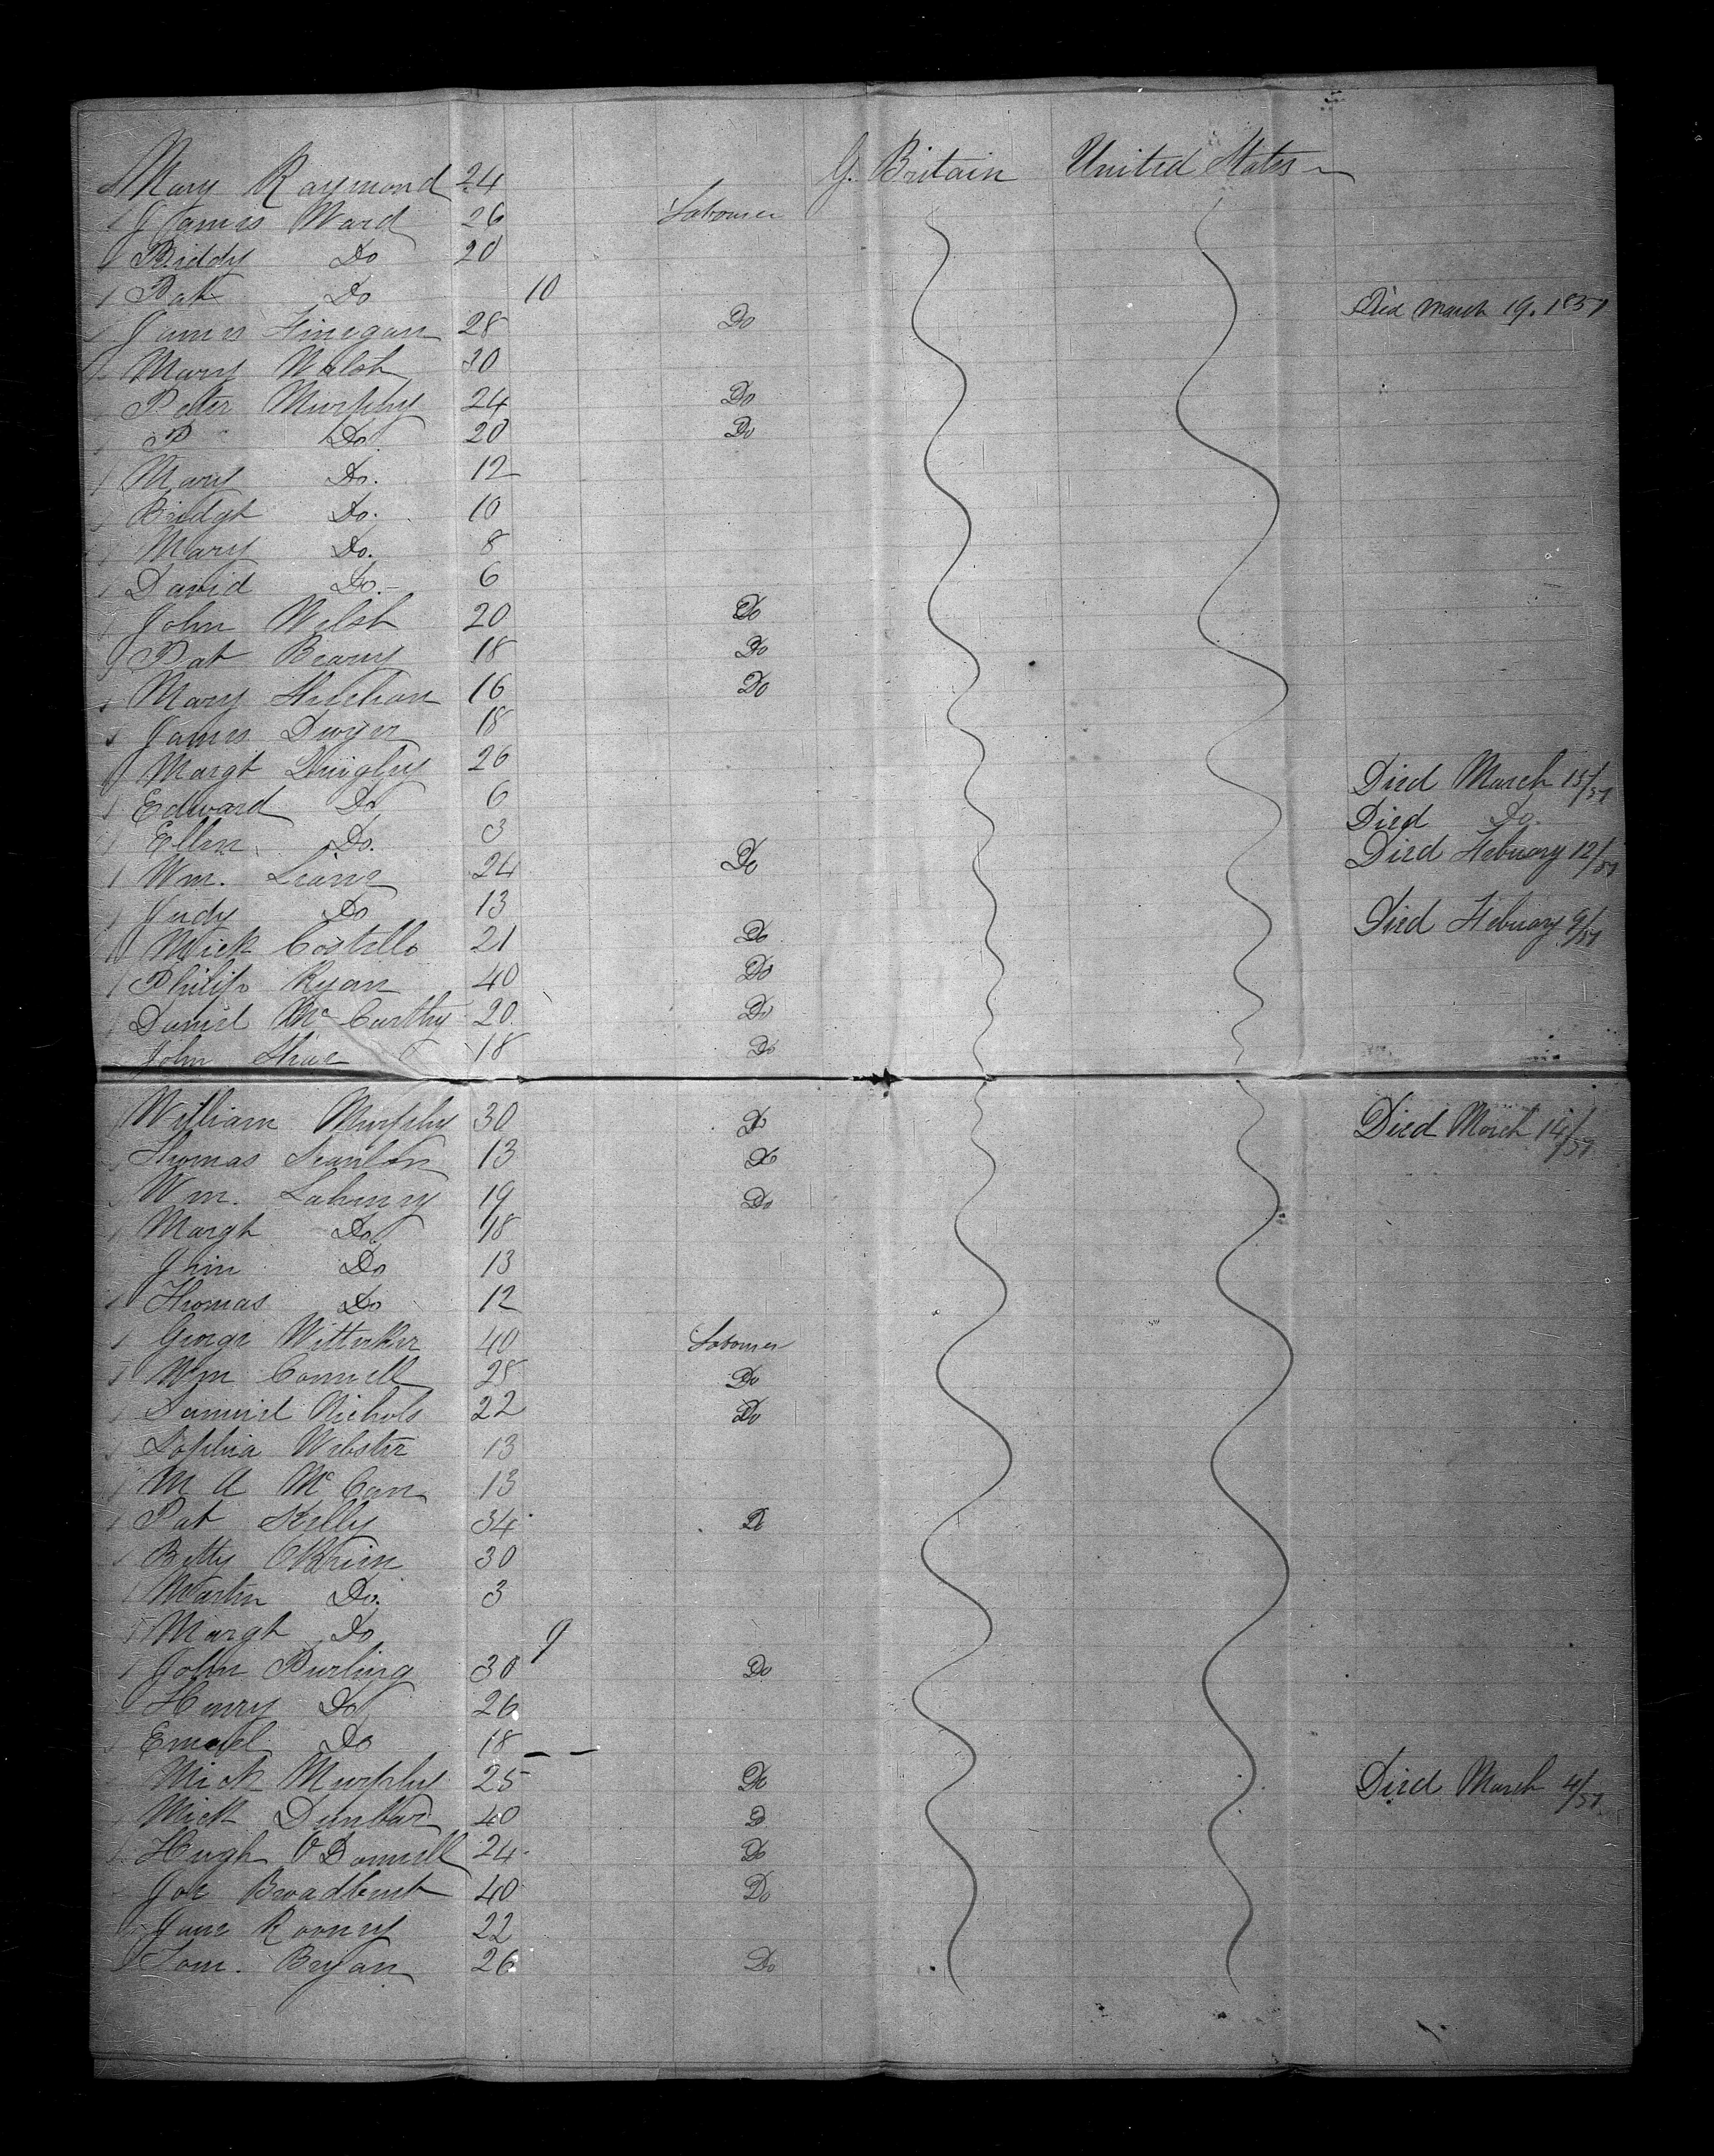 Mary Raymond 24 G. Britain United States
James Ward 26 Labourer
Biddy Do 20
Pat Do 10 Died March 19. 1851
James Finegan 28 Do
Mary Walsh 30
Peter Murphy 24 Do
P Do 20 Do
Mary Do. 12
Bridgt Do. 10
Mary Do. 8
David Do. 6
John Welsh 20 Do
Pat Beany 18 Do
Mary 16 Do
James Dwyer 18
Margt Quigley 26 Died March 15/51
Edward Do 6 Died Do.
Ellen Do. 3 Died Febuary 12/51
Wm. 24 Do
Judy Do 13 Died Febuary 9/51
Mick Costello 21 Do
Philip Ryan 40 Do
Daniel McCarthy 20 Do
John 18 Do
William Murphy 30 Do Died March 14/51
Thomas Scanlon 13 Do
Wm. Lahenny 19 Do
Margt Do 18
Jhn Do 13
Thomas Do 12
George Witterker 40 Labourer
Wm Connell 28 Do
Samuel Nichols 22 Do
Sophia Webster 13
M A McCan 13
Pat Kelly 34 Do
Betty OBrien 30
Martin Do. 3
Margt Do 9
John Burling 30 Do
Henry Do 26
Do 18
Mick Murphy 25 Do Died March 4/51
Mick Dunbar 40 Do
Hugh O'Donnell 24 Do
Joe Broadbent 40 Do
Jane Rooney 22
Tom. Bryan 26 Do